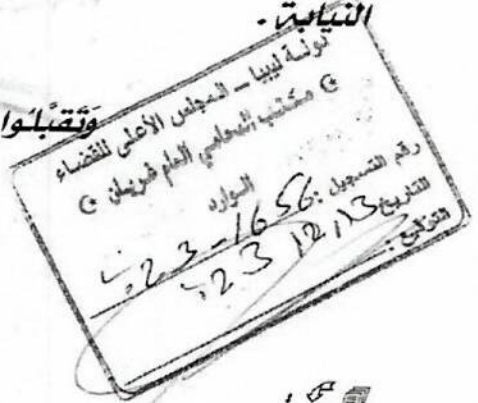 النيابة .
وَتقبَّلُوا
دولة ليبيا – المجلس الأعلى للقضاء
مكتب المحامي العام غريان
الوارد
رقم التسجيل : 1656-23
التاريخ 13, 12 23
التوقيع :